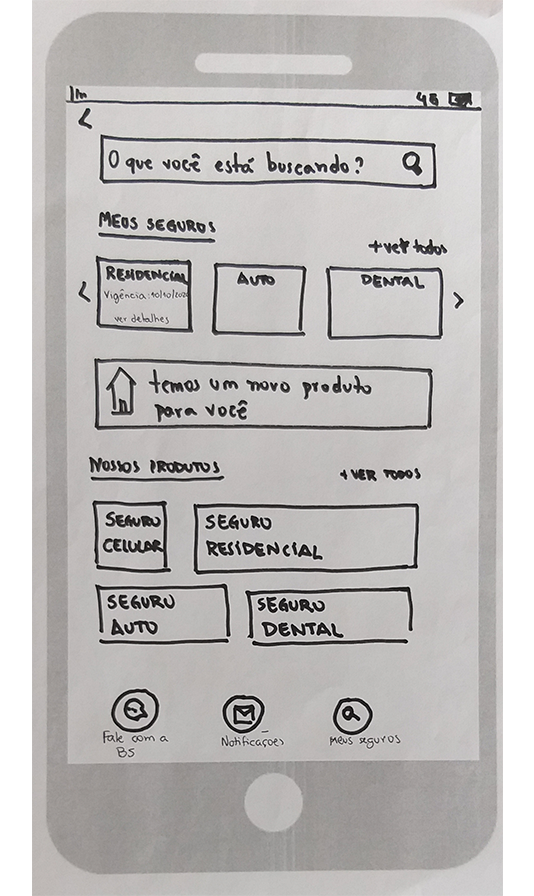 4G
O que você está buscando?
MEUS SEGUROS
+ver todos
RESIDENCIAL
Vigência: 10/10/2020
ver detalhes
AUTO
DENTAL
temos um novo produto
para você
NOSSOS PRODUTOS
+ VER TODOS
SEGURO
CELULAR
SEGURO
RESIDENCIAL
SEGURO
AUTO
SEGURO
DENTAL
Fale com a
BS
Notificações
Meus seguros